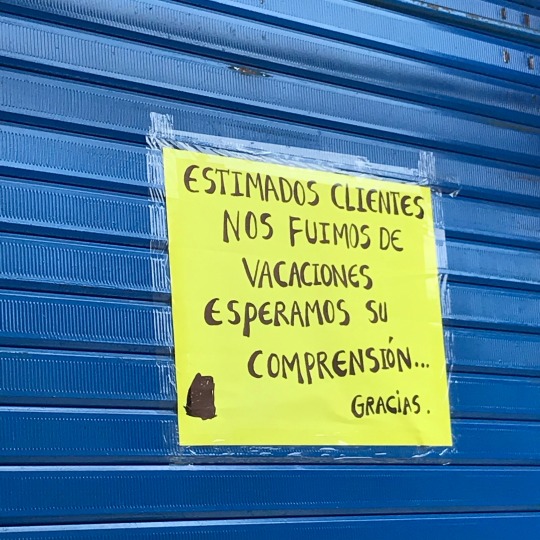 ESTIMADOS CLIENTES
NOS FUIMOS DE
VACACIONES
ESPERAMOS SU
COMPRENSIÓN...
GRACIAS.